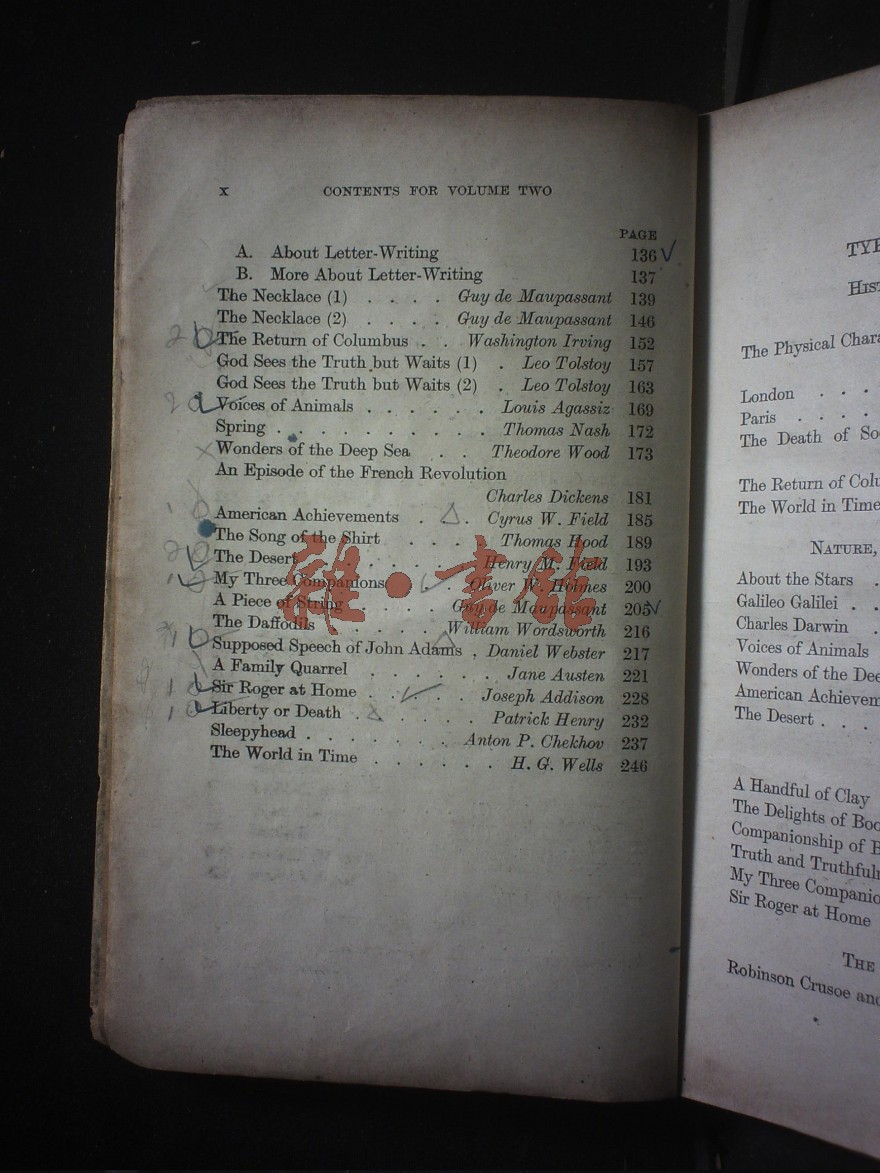 X CONTENTS FOR VOLUME TWO
PAGE
A. About Letter-Writing 136
B. More About Letter-Writing 137
The Necklace (1) . . . . Guy de Maupassant 139
The Necklace (2) . . . . Guy de Maupassant 146
The Return of Columbus . . Washington Irving 152
God Sees the Truth but Waits (1) . Leo Tolstoy 157
God Sees the Truth but Waits (2) . Leo Tolstoy 163
Voices of Animals . . . . . . Louis Agassiz 169
Spring . . . . . . . . . . Thomas Nash 172
Wonders of the Deep Sea . . Theodore Wood 173
An Episode of the French Revolution
Charles Dickens 181
American Achievements . . . Cyrus W. Field 185
The Song of the Shirt . . . Thomas Hood 189
The Desert . . . . . Henry M. Field 193
My Three Companions . Oliver W. Holmes 200
A Piece of String . . . . Guy de Maupassant 205
The Daffodils . . . . . William Wordsworth 216
Supposed Speech of John Adams . Daniel Webster 217
A Family Quarrel . . . . . . Jane Austen 221
Sir Roger at Home . . . . . Joseph Addison 228
Liberty or Death . . . . . . Patrick Henry 232
Sleepyhead . . . . . . . Anton P. Chekhov 237
The World in Time . . . . . . H. G. Wells 246
書館
HIST
The Physical Chara
London . . .
Paris . . . .
The Death of So
The Return of Colu
The World in Time
NATURE,
About the Stars .
Galileo Galilei . .
Charles Darwin .
Voices of Animals
Wonders of the Dee
American Achievem
The Desert . . .
A Handful of Clay
The Delights of Boo
Companionship of B
Truth and Truthfuln
My Three Companio
Sir Roger at Home
THE
Robinson Crusoe and